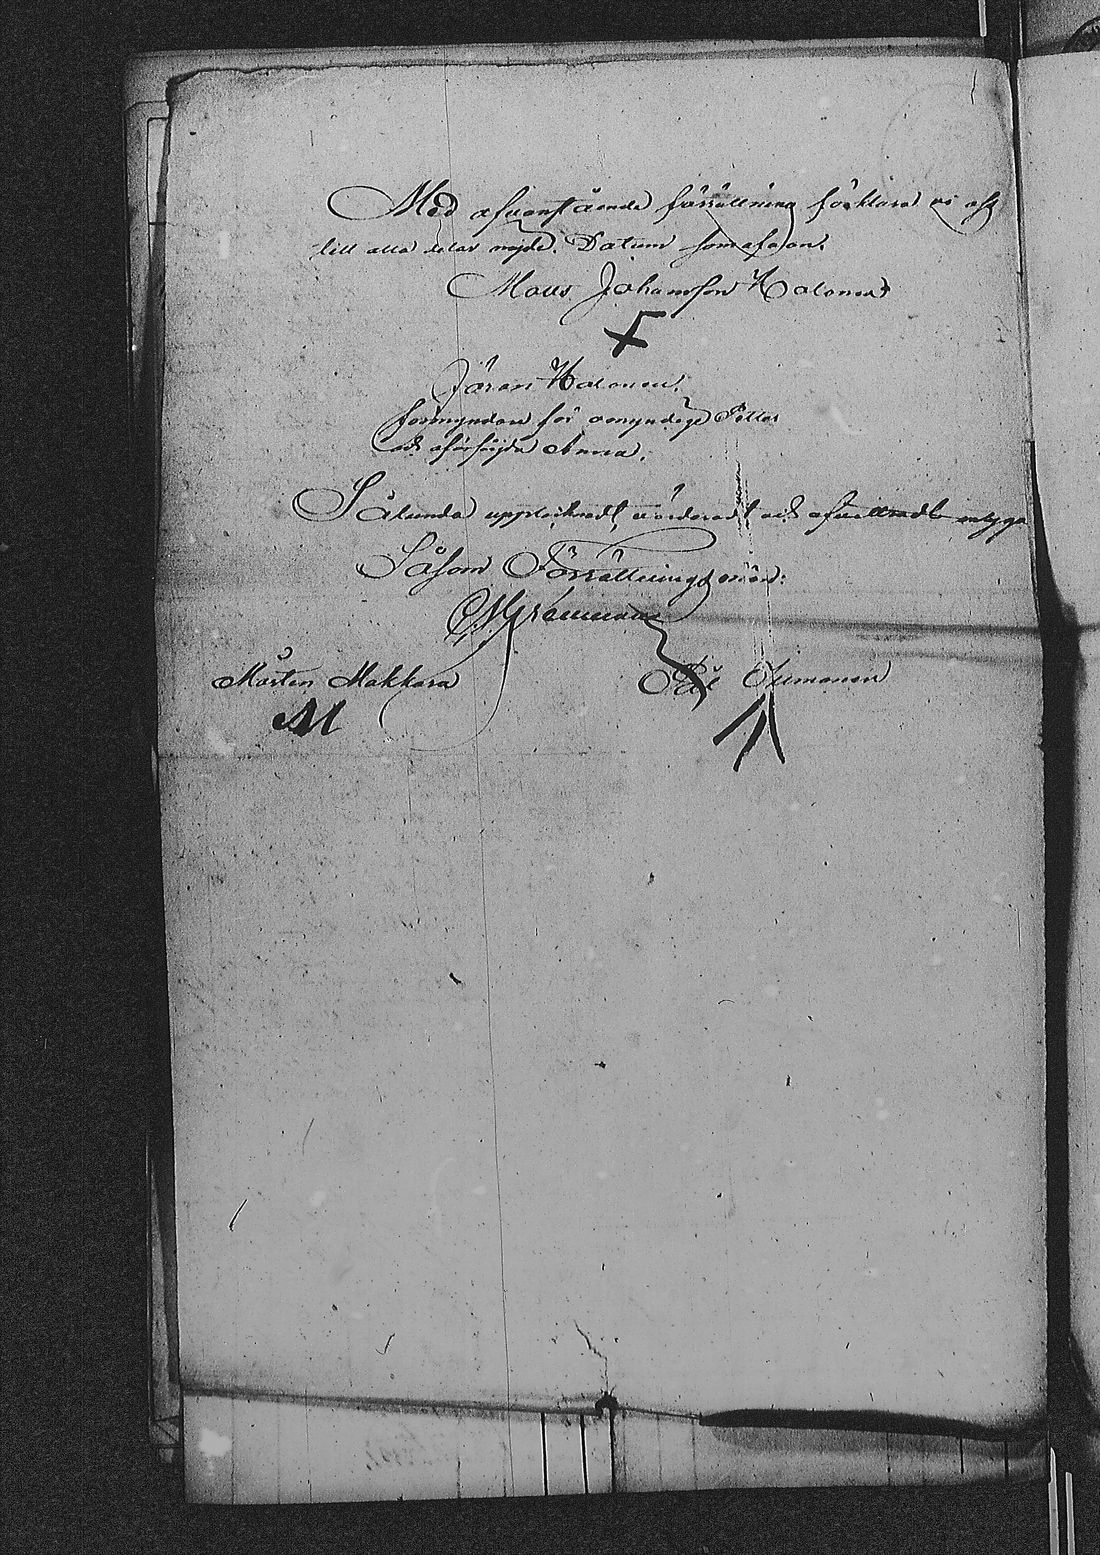 Med afvanstående förrättning förklara vi oss
till alla delar nöjde. Datum som afvan.
Maus Johansson Halonen
Jöran Halonen.
förmyndare för omyndige Petter
och afärfrijda Anna.
Sålunda uppteknadt, värderadt och afvittradt intyga
Såsom Förrättningsmän:
Mårten Makkara
Pål Summanen
M